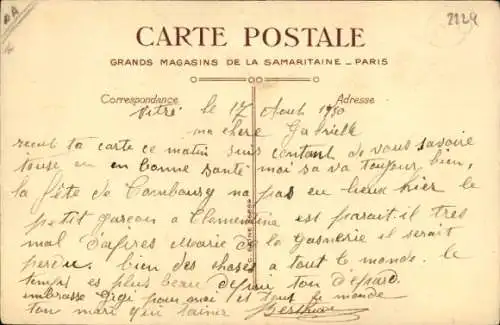 2224
CARTE POSTALE
GRANDS MAGASINS DE LA SAMARITAINE _ PARIS
Correspondance
Adresse
Vitré le 17 Aout 1930
ma chere Gabrielle
recut ta carte ce matin suis contant de vous savoire
touse en en bonne santé moi sa va toujour bien,
la fête de Combourg na pas eu lieux hier le
petit garcon a Clementine est parait il tres
mal d'apires Marie de la Gasnerie il serait
perdu. bien des choses a tout le monde. le
temps es plus beau depuie ton départ.
embrasse Gigi pour moi et tout le monde
ton mari qui t'aime